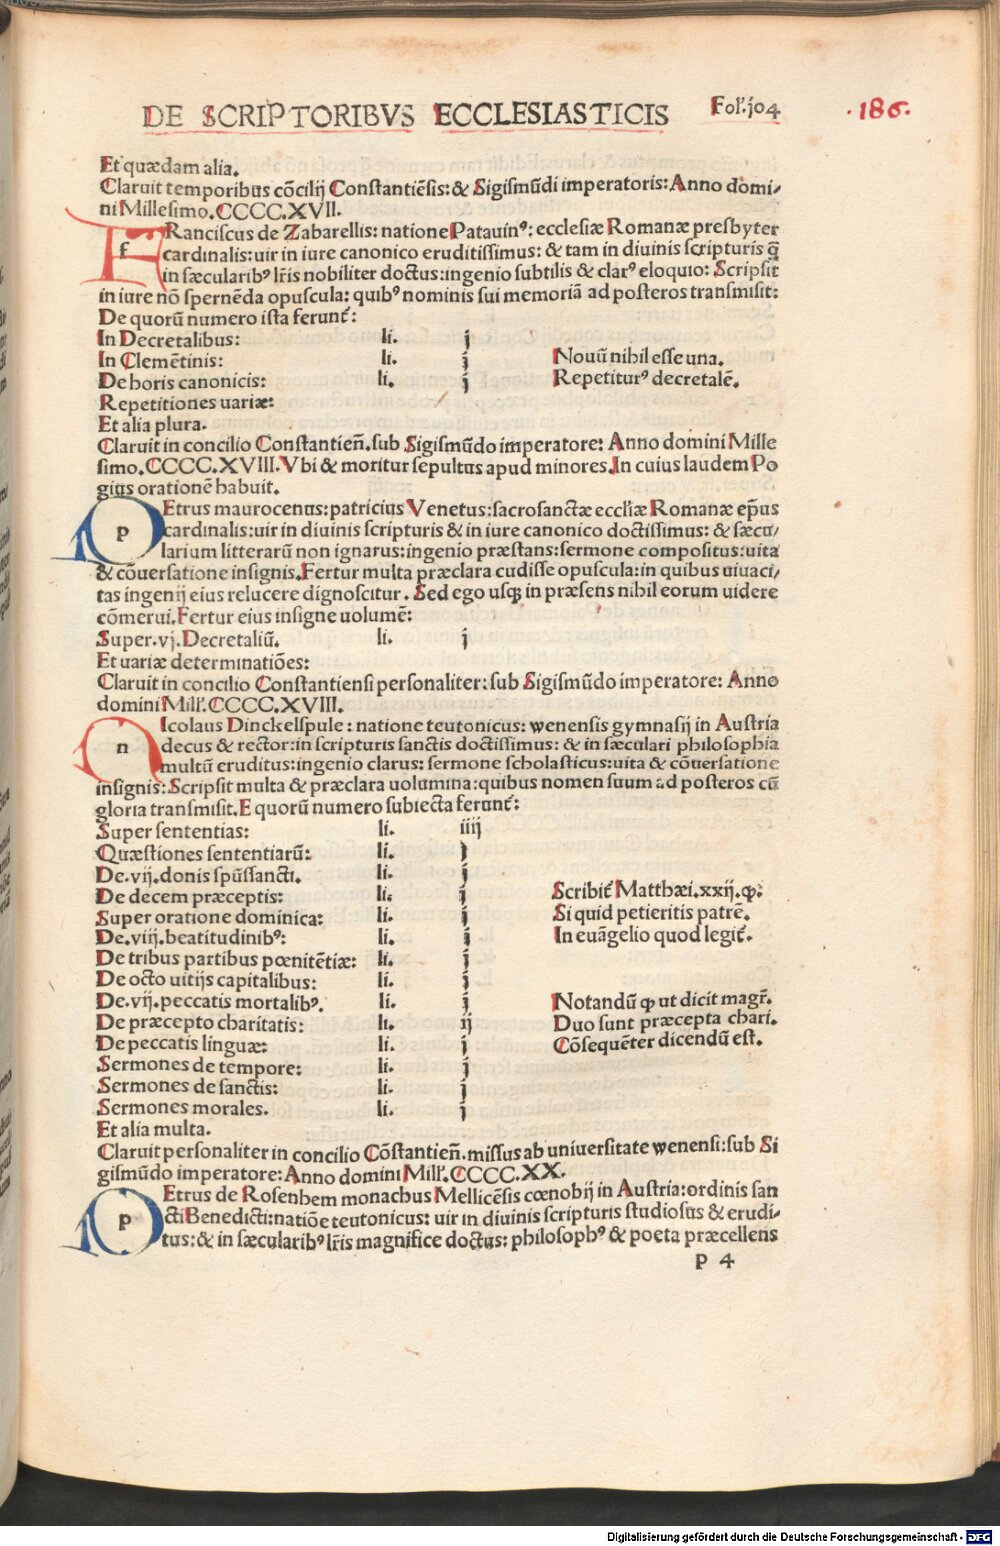 DE SCRIPTORIBVS ECCLESIASTICIS Fol'.104 .186.
Et quædam alia.
Claruit temporibus cōcilij Constantiēsis: & Sigismūdi imperatoris: Anno domi-
ni Millesimo.CCCC.XVII.
f
FRanciscus de Zabarellis: natione Patauinꝰ: ecclesiæ Romanæ presbyter
cardinalis: uir in iure canonico eruditissimus: & tam in diuinis scripturis q̄
in sæcularibꝰ lr̄is nobiliter doctus: ingenio subtilis & clarꝰ eloquio: Scripsit
in iure nō spernēda opuscula: quibꝰ nominis sui memoriā ad posteros transmisit:
De quorū numero ista ferunt᷑:
In Decretalibus: li. j
In Clemētinis: li. j Nouū nihil esse una.
De horis canonicis: li. j Repetiturꝰ decretalē.
Repetitiones uariæ:
Et alia plura.
Claruit in concilio Constantien̄.sub Sigismūdo imperatore: Anno domini Mille
simo.CCCC.XVIII.Vbi & moritur sepultus apud minores.In cuius laudem Po
gius orationē habuit.
p
PEtrus maurocenus: patricius Venetus: sacrosanctæ eccl̄iæ Romanæ ep̄us
cardinalis: uir in diuinis scripturis & in iure canonico doctissimus: & sæcu-
larium litterarū non ignarus: ingenio præstans: sermone compositus: uita
& cōuersatione insignis.Fertur multa præclara cudisse opuscula: in quibus uiuaci-
tas ingenij eius relucere dignoscitur. Sed ego usqꝫ in præsens nihil eorum uidere
cōmerui.Fertur eius insigne uolumē:
Super.vj.Decretaliū. li. j
Et uariæ determinatiões:
Claruit in concilio Constantiensi personaliter: sub Sigismūdo imperatore: Anno
domini Mill'.CCCC.XVIII.
n
NIcolaus Dinckelspule: natione teutonicus: wenensis gymnasij in Austria
decus & rector: in scripturis sanctis doctissimus: & in sæculari philosophia
multū eruditus: ingenio clarus: sermone scholasticus: uita & cōuersatione
insignis: Scripsit multa & præclara uolumina: quibus nomen suum ad posteros cū
gloria transmisit.E quorū numero subiecta ferunt᷑:
Super sententias: li. iiij
Quæstiones sententiarū: li. j
De.vij.donis sp̄ussancti. li. j
De decem præceptis: li. j Scribit᷑ Matthæi.xxij.ꝙ:
Super oratione dominica: li. j Si quid petieritis patrē.
De.viij.beatitudinibꝰ: li. j In euāgelio quod legit᷑.
De tribus partibus pœnitētiæ: li. j
De octo uitijs capitalibus: li. j
De.vij.peccatis mortalibꝰ. li. j Notandū ꝙ ut dicit magr̄.
De præcepto charitatis: li. ij Duo sunt præcepta chari.
De peccatis linguæ: li. j Cōsequēter dicendū est.
Sermones de tempore: li. j
Sermones de sanctis: li. j
Sermones morales. li. j
Et alia multa.
Claruit personaliter in concilio Cōstantien̄.missus ab uniuersitate wenensi: sub Si
gismūdo imperatore: Anno domini Mill'.CCCC.XX.
p
PEtrus de Rosenhem monachus Mellicēsis cœnobij in Austria: ordinis san
cti Benedicti: natiōe teutonicus: uir in diuinis scripturis studiosus & erudi-
tus: & in sæcularibꝰ lr̄is magnifice doctus: philosophꝰ & poeta præcellens
p 4
Digitalisierung gefördert durch die Deutsche Forschungsgemeinschaft - DFG